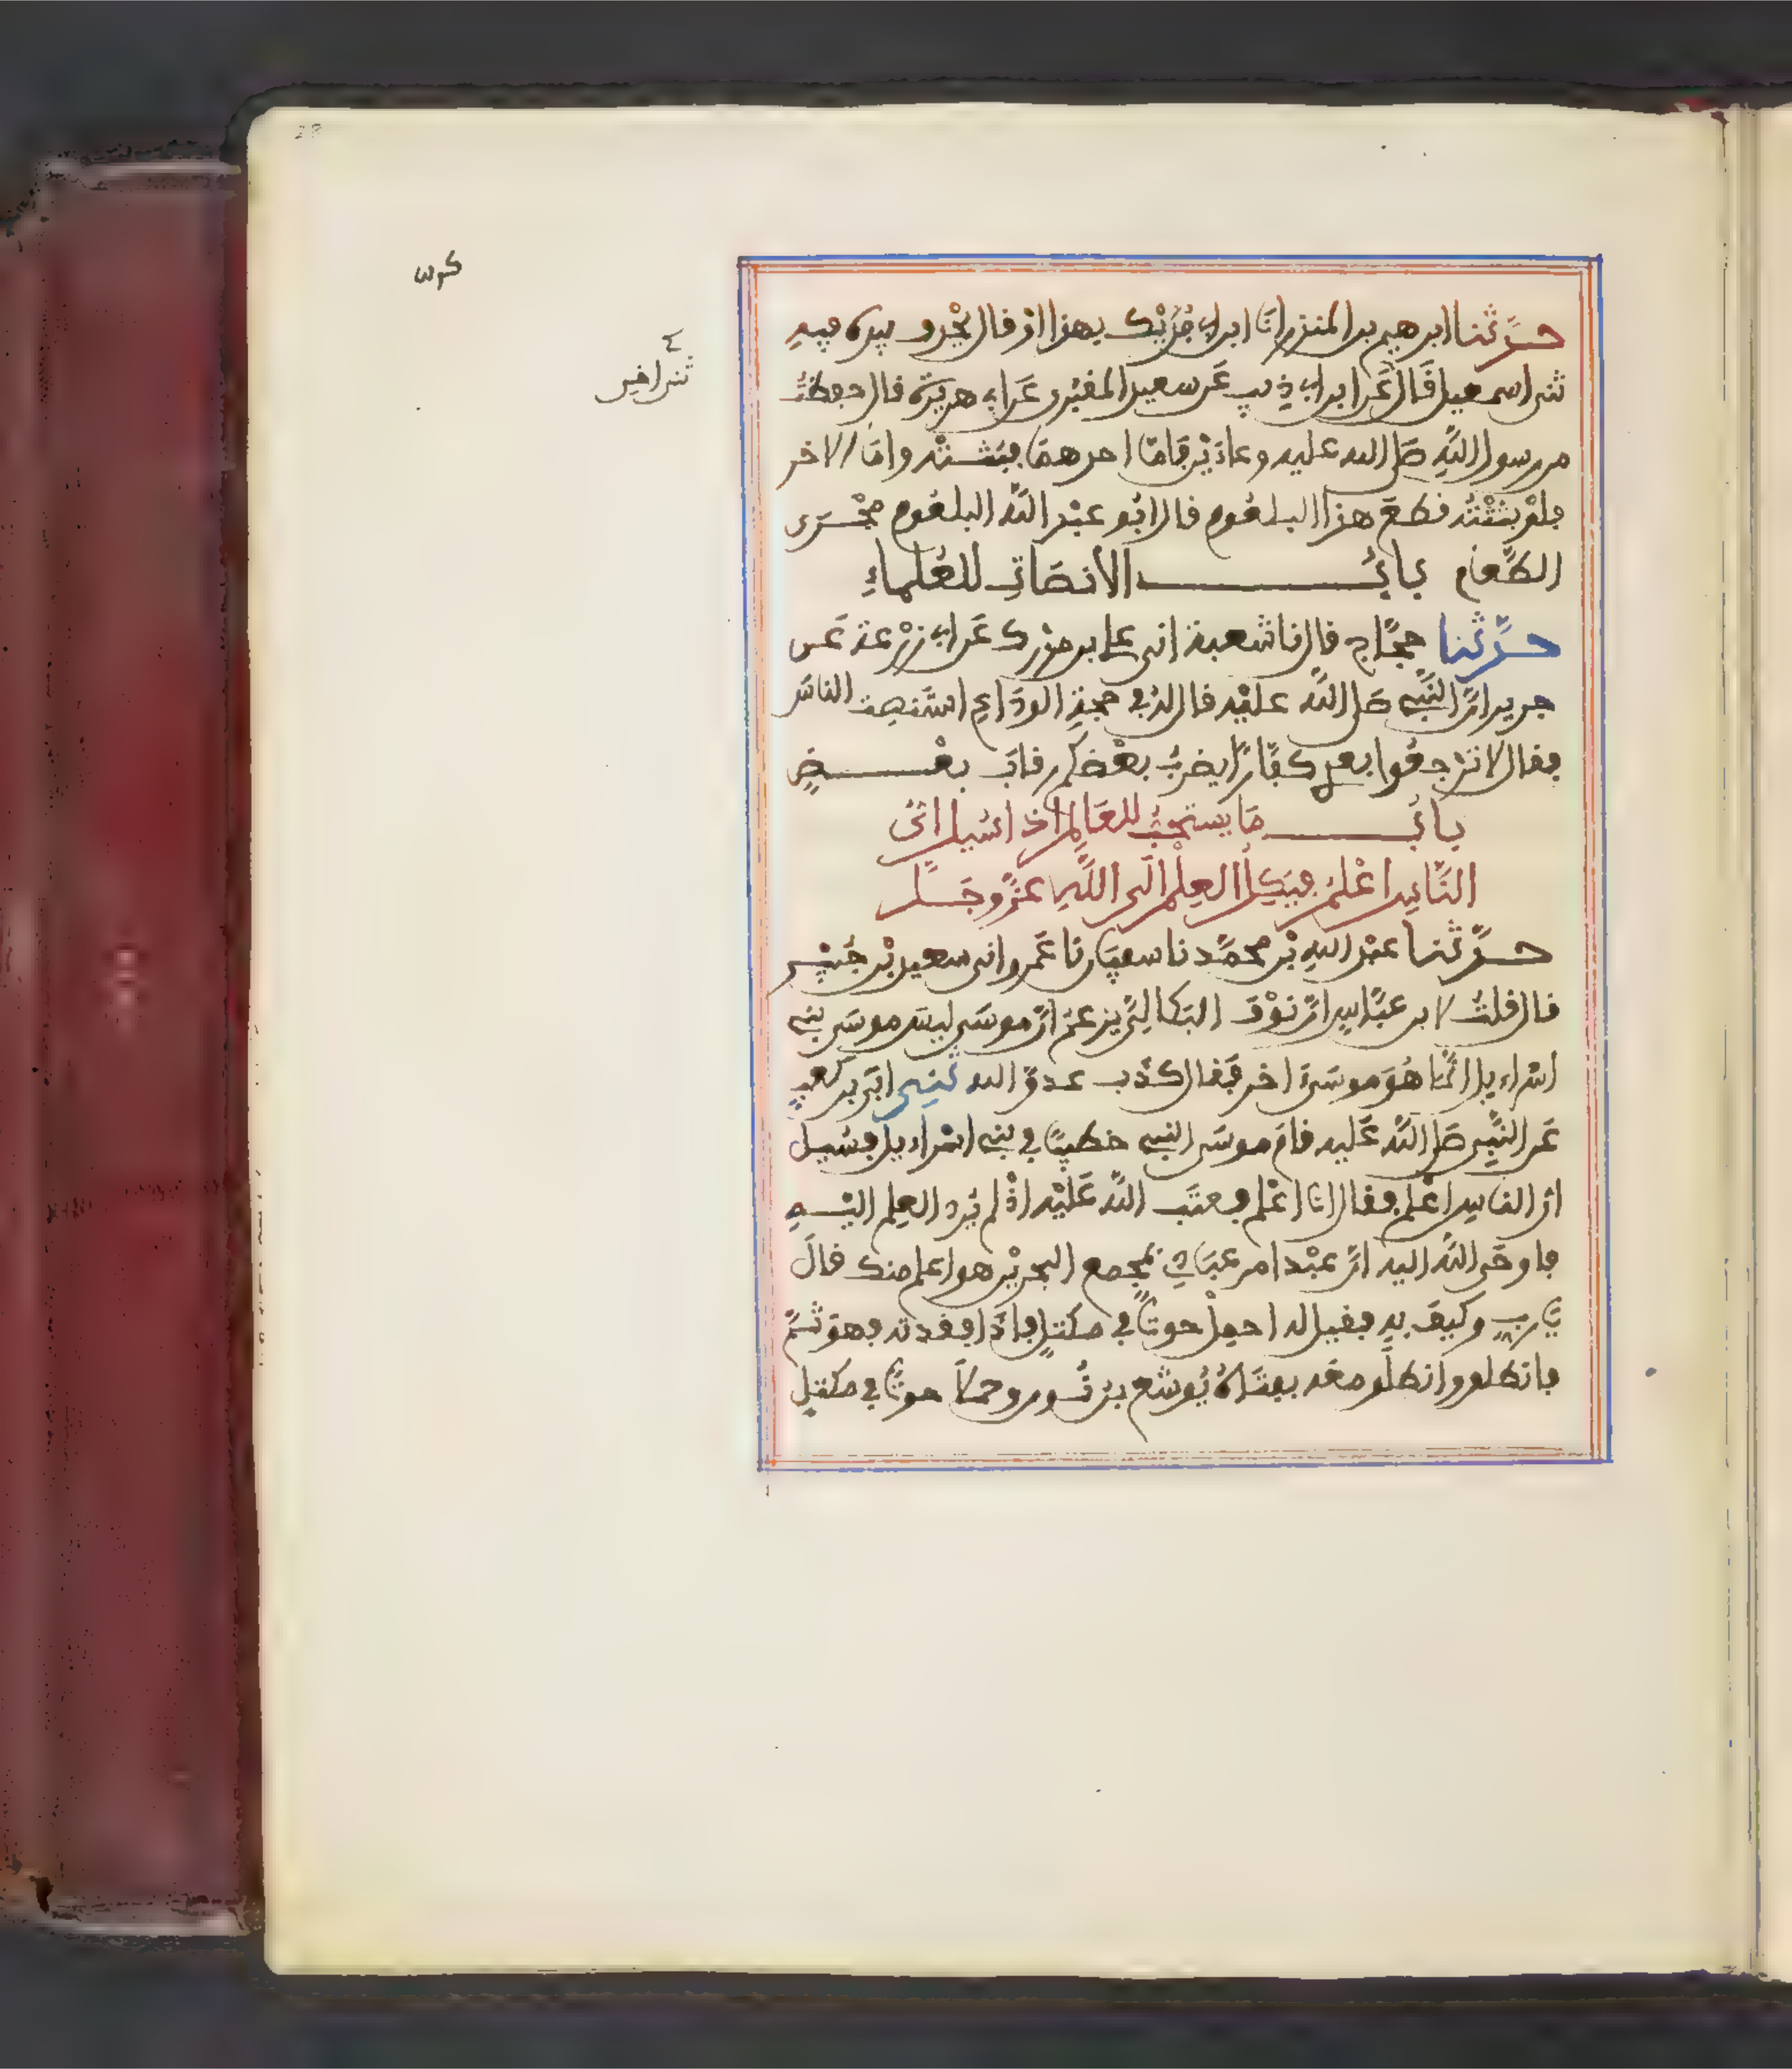 حدثنا ابرهيم بن المنذر انا ابن ابي فديك بهذا او قال يحذف بيده فيه
ثنى اسمعيل قال عن ابن ابي ذيب عن سعيد المقبري عن ابي هريرة قال حفظت
من رسول الله صلى الله عليه وعاءين فاما احدهما فبثثته واما الاخر
فلو بثثته قطع هذا البلعوم قال ابو عبد الله البلعوم مجرى
الطعام باب الانصات للعلماء
حدثنا حجاج قال نا شعبة اني علي بن مدرك عن ابي زرعة عن
جرير ان النبي صلى الله عليه قال له في حجة الوداع استنصت الناس
فقال لا ترجعوا بعدي كفارا يضرب بعضكم رقاب بعض
باب ما يستحب للعالم اذا سيل اي
الناس اعلم فيكل العلم الى الله عز وجل
حدثنا عبد الله بن محمد نا سفيان نا عمرو اني سعيد بن جبير
قال قلت لابن عباس ان نوف البكالي يزعم ان موسى ليس موسى بني
اسراءيل انما هو موسى اخر فقال كذب عدو الله ثني ابي بن كعب
عن النبي صلى الله عليه قام موسى النبي خطيبا في بني اسراءيل فسيل
اي الناس اعلم فقال انا اعلم فعتب الله عليه اذ لم يرد العلم اليه
فاوحى الله اليه ان عبدا من عبادي بمجمع البحرين هو اعلم منك قال
يا رب وكيف به فقيل له احمل حوتا في مكتل فاذا فقدته فهو ثم
فانطلق وانطلق معه بفتاه يوشع بن نون وحملا حوتا في مكتل